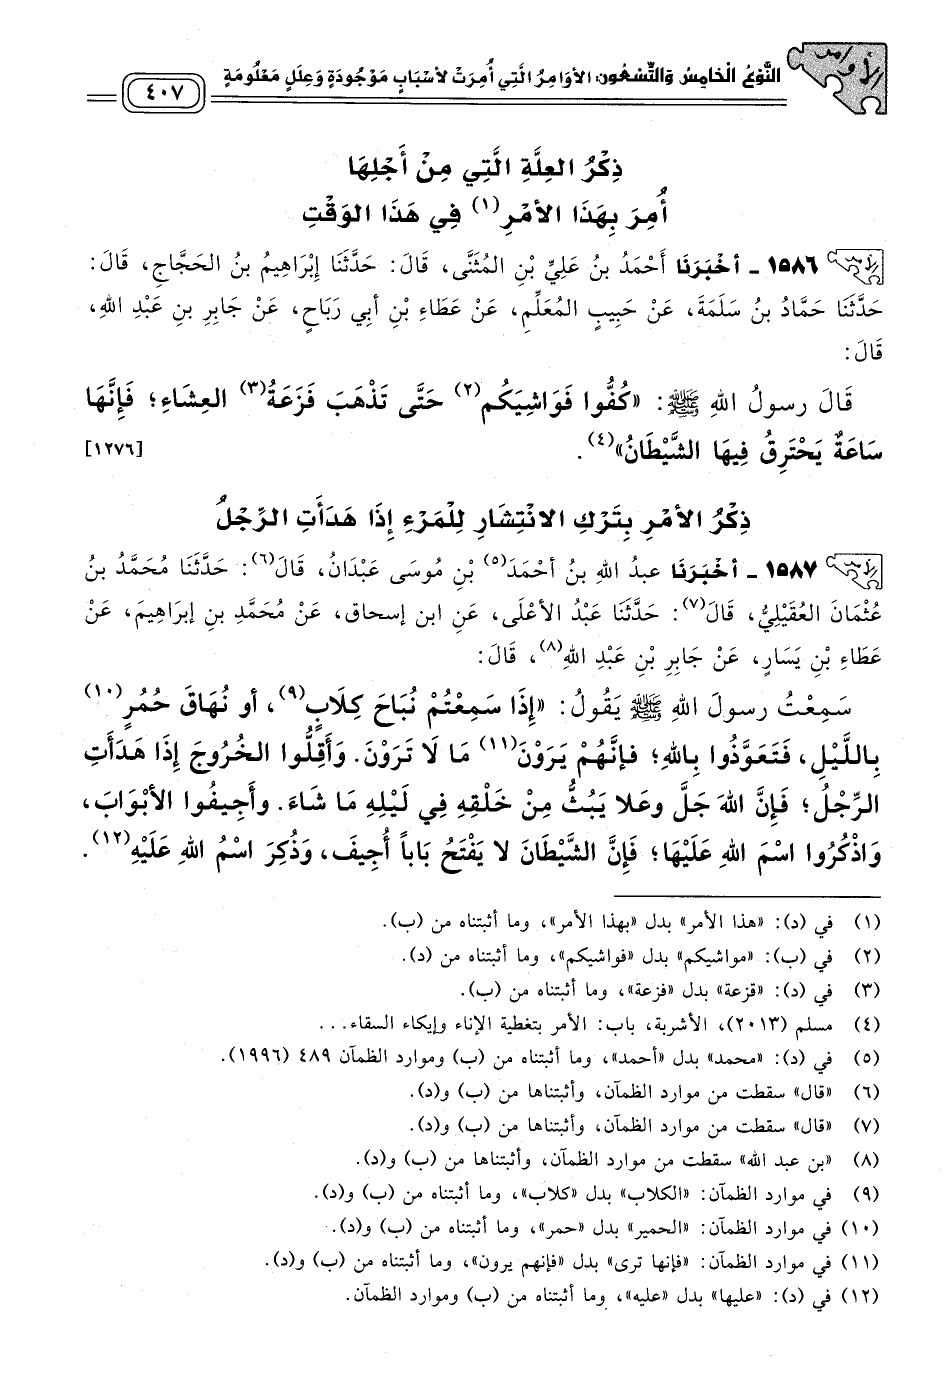 الأوامر
النَّوْعُ الْخَامِسُ وَالتِّسْعُون: الأوَامِرُ الَّتِي أُمِرَتْ لأسْبَابٍ مَوْجُودَةٍ وَعِلَلٍ مَعْلُومَةٍ
٤٠٧
ذِكْرُ العِلَّةِ الَّتِي مِنْ أَجْلِهَا
أُمِرَ بِهَذَا الأمْرِ(١) فِي هَذَا الوَقْتِ
١٥٨٦ - أخْبَرَنَا أَحْمَدُ بنُ عَلِيِّ بْنِ المُثَنَّى، قَالَ: حَدَّثَنَا إبْرَاهِيمُ بنُ الحَجَّاجِ، قَالَ:
حَدَّثَنَا حَمَّادُ بنُ سَلَمَةَ، عَنْ حَبِيبٍ المُعَلِّمِ، عَنْ عَطَاءِ بْنِ أبِي رَبَاحٍ، عَنْ جَابِرِ بنِ عَبْدِ اللهِ،
قَالَ:
قَالَ رسولُ اللهِ ﷺ: «كُفُّوا فَوَاشِيَكُم(٢) حَتَّى تَذْهَبَ فَزَعَةُ(٣) العِشَاءِ؛ فَإنَّهَا
سَاعَةٌ يَخْتَرِقُ فِيهَا الشَّيْطَانُ»(٤). [١٢٧٦]
ذِكْرُ الأمْرِ بِتَرْكِ الانْتِشَارِ لِلْمَرْءِ إذَا هَدَأَتِ الرِّجْلُ
١٥٨٧ - أخْبَرَنَا عبدُ اللهِ بنُ أحْمَدَ(٥) بْنِ مُوسَى عَبْدَانُ، قَالَ(٦): حَدَّثَنَا مُحَمَّدُ بنُ
عُثْمَانَ العُقَيْلِيُّ، قَالَ(٧): حَدَّثَنَا عَبْدُ الأعْلَى، عَنِ ابن إسحاق، عَنْ مُحَمَّدِ بنِ إبرَاهِيمَ، عَنْ
عَطَاءِ بْنِ يَسَارٍ، عَنْ جَابِرِ بْنِ عَبْدِ اللهِ(٨)، قَالَ:
سَمِعْتُ رسولَ اللهِ ﷺ يَقُولُ: «إذَا سَمِعْتُمْ نُبَاحَ كِلَابٍ(٩)، أو نُهَاقَ حُمُرٍ(١٠)
بِاللَّيْلِ، فَتَعَوَّذُوا بِاللهِ؛ فإنَّهُمْ يَرَوْنَ(١١) مَا لَا تَرَوْنَ. وَأقِلُّوا الخُرُوجَ إذَا هَدَأَتِ
الرِّجْلُ؛ فَإنَّ اللهَ جَلَّ وعَلا يَبُثُّ مِنْ خَلْقِهِ فِي لَيْلِهِ مَا شَاءَ. وأجِيفُوا الأبْوَابَ،
وَاذْكُرُوا اسْمَ اللهِ عَلَيْهَا؛ فَإنَّ الشَّيْطَانَ لا يَفْتَحُ بَاباً أُجِيفَ، وَذُكِرَ اسْمُ اللهِ عَلَيْهِ(١٢).
(١) في (د): «هذا الأمر» بدل «بهذا الأمر»، وما أثبتناه من (ب).
(٢) في (ب): «مواشيكم» بدل «فواشيكم»، وما أثبتناه من (د).
(٣) في (د): «قزعة» بدل «فزعة»، وما أثبتناه من (ب).
(٤) مسلم (٢٠١٣)، الأشربة، باب: الأمر بتغطية الإناء وإيكاء السقاء...
(٥) في (د): «محمد» بدل «أحمد»، وما أثبتناه من (ب) وموارد الظمآن ٤٨٩ (١٩٩٦).
(٦) «قال» سقطت من موارد الظمآن، وأثبتناها من (ب) و(د).
(٧) «قال» سقطت من موارد الظمآن، وأثبتناها من (ب) و(د).
(٨) «بن عبد الله» سقطت من موارد الظمآن، وأثبتناها من (ب) و(د).
(٩) في موارد الظمآن: «الكلاب» بدل «كلاب»، وما أثبتناه من (ب) و(د).
(١٠) في موارد الظمآن: «الحمير» بدل «حمر»، وما أثبتناه من (ب) و(د).
(١١) في موارد الظمآن: «فإنها ترى» بدل «فإنهم يرون»، وما أثبتناه من (ب) و(د).
(١٢) في (د): «عليها» بدل «عليه»، وما أثبتناه من (ب) وموارد الظمآن.